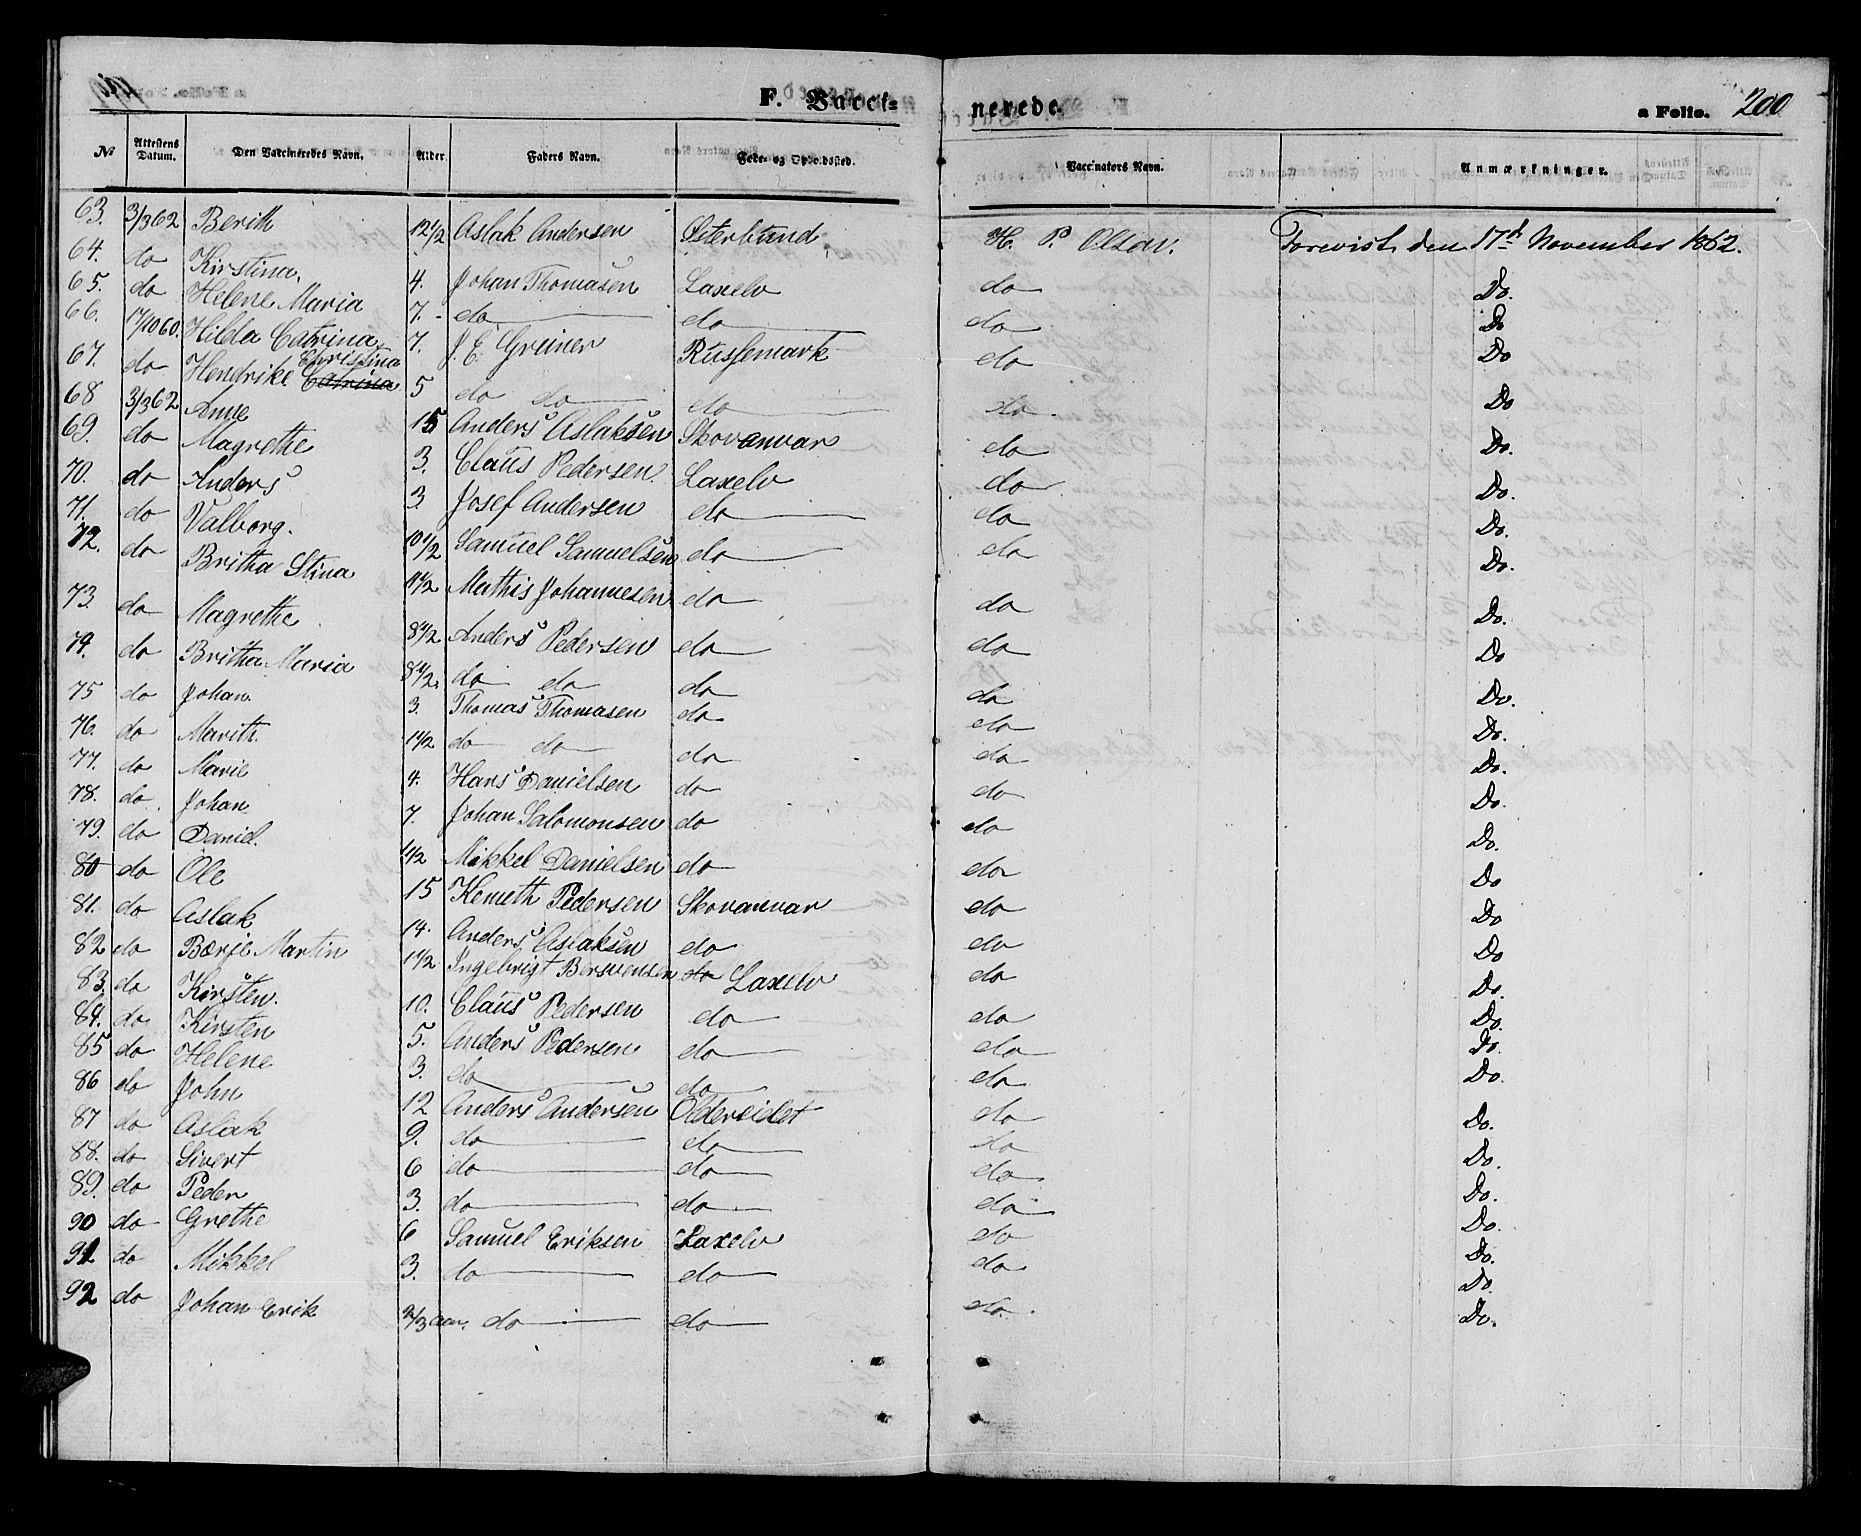 F. Vacci= nerede. a Folio. 200
No Attestens Datum. Den Vaccineredes Navn. Alder. Faders Navn. Føde- og Opholdssted. Vaccinators Navn. Anmærkninger.
63. 3/3 62 Berith 12 1/2 Aslak Andersen Østerbund H. P. Olsen. Forevist den 17de November 1862.
64. do Kirstina, 4. Johan Thomasen Laxelv do Do.
65. do Helene Maria 7. do do do Do
66. 17/10 60. Hilda Catrina 7. J. E. Greiner Russemark do Do
67. do Hendrike Christina Catrina 5 do do do do. Do
68 3/3 62 Anne 15 Anders Aslaksen Skovanvar do Do.
69. do Magrethe 3. Claus Pedersen. Laxelv do Do.
70. do Anders 3. Josef Andersen do do Do.
71. do Valborg. 10 1/2 Samuel Samuelsen do do Do.
72. do Britha Stina 11 1/2 Mathis Johannesen do do Do.
73. do Magrethe 8 1/2 Anders Pedersen do do Do
74. do Britha Maria 8 1/2. do do do do Do.
75 do Johan. 3. Thomas Thomasen do do Do.
76. do Marith. 1 1/2 do do do do Do.
77. do Marie 4. Hans Danielsen do do Do.
78. do. Johan 7. Johan Salomonsen do do Do.
79. do Daniel. 1 1/2 Mikkel Danielsen do do Do
80 do Ole 15 Kemeth Pedersen Skovanvar do Do
81. do Aslak 14. Anders Aslaksen do do Do
82 do Børje Martin 1 1/2 Ingebrigt Bersvensen do Laxelv do Do.
83. do Kirsten. 10. Claus Pedersen do do Do.
84. do Kirsten 5. Anders Pedersen do do Do.
85 do Helene 3. do do do Do.
86 do John 12 Anders Andersen Oldereidet do Do.
87 do Aslak 9. do do do Do.
88. do Sivert 6 do do do Do.
89. do Peder 3. do do do Do.
90 do Grethe 6 Samuel Eriksen Laxelv do Do.
91 do Mikkel 3. do do do Do.
92 do Johan Erik 2/3 aar. do do do. Do.